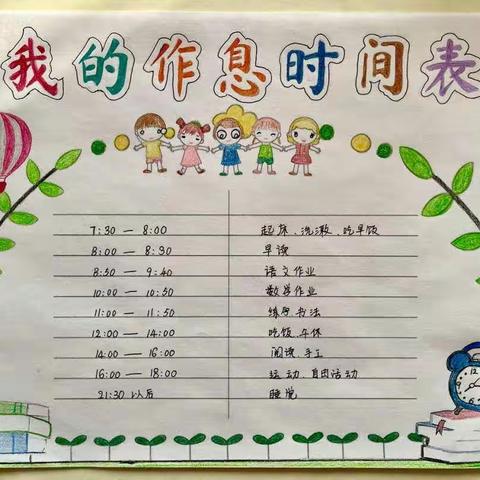 我的作息时间表
7:30 — 8:00 起床、洗漱、吃早饭
8:00 — 8:30 早读
8:50 — 9:40 语文作业
10:00 — 10:50 数学作业
11:00 — 11:50 练习书法
12:00 — 14:00 吃饭、午休
14:00 — 16:00 阅读、手工
16:00 — 18:00 运动、自由活动
21:30 以后 睡觉